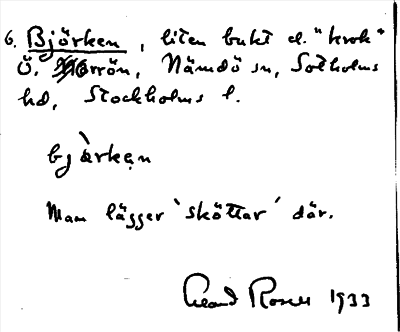 6. Björken, liten bukt el. "krok"
Ö. Morrön, Nämdö sn, Sotholms
hd, Stockholms l.
bjàrkęn
Man lägger 'sköttar' där.
Rosell 1933